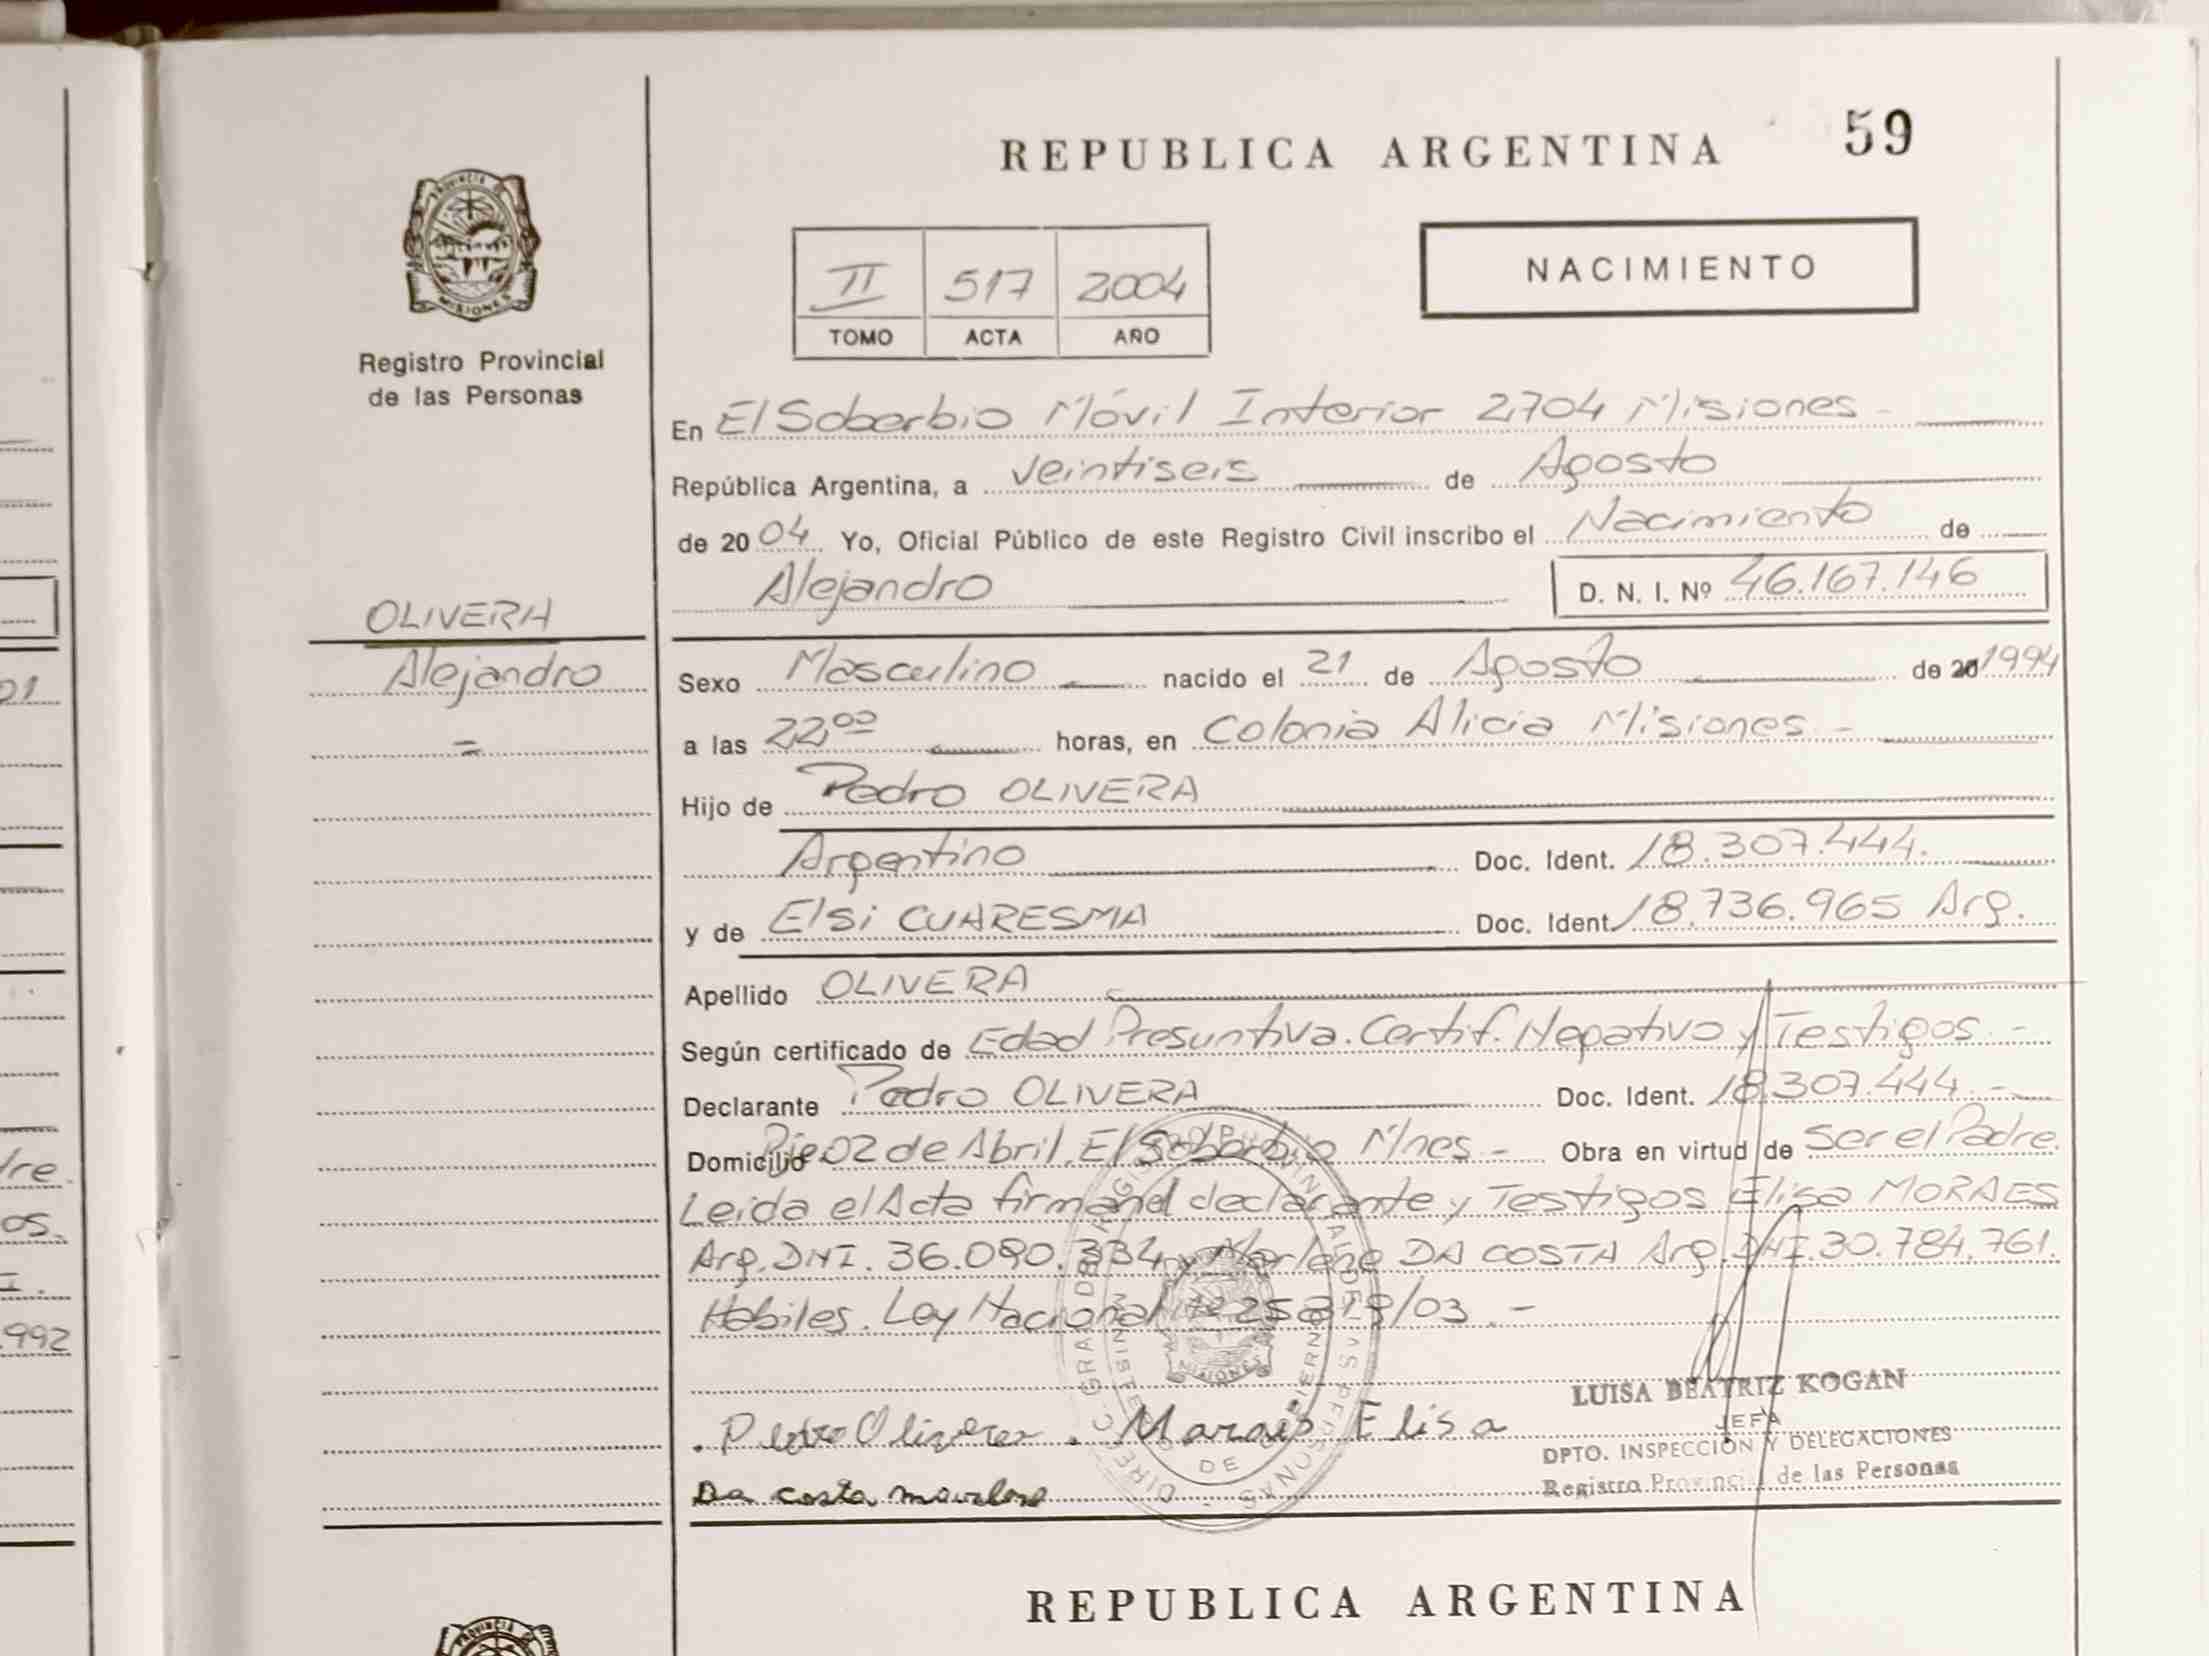 REPUBLICA ARGENTINA 59
PROVINCIA DE
MISIONES
Registro Provincial
de las Personas
II 517 2004
TOMO ACTA AÑO
NACIMIENTO
En El Soberbio Móvil Interior 2704 Misiones -
República Argentina, a veintiseis de Agosto
de 2004 Yo, Oficial Público de este Registro Civil inscribo el Nacimiento de
Alejandro D. N. I. Nº 46.167.146
OLIVERA
Alejandro
=
Sexo Masculino nacido el 21 de Agosto de 20 1994
a las 22,00 horas, en Colonia Alicia Misiones -
Hijo de Pedro OLIVERA
Argentino Doc. Ident. 18.307.444.
y de Elsi CUARESMA Doc. Ident. 18.736.965 Arg.
Apellido OLIVERA
Según certificado de Edad Presuntiva. Certif. Negativo y Testigos. -
Declarante Pedro OLIVERA Doc. Ident. 18.307.444. -
Domicilio 02 de Abril. El Soberbio Mnes - Obra en virtud de ser el Padre.
Leida el Acta firman el declarante y Testigos Elisa MORAES
Arg. DNI. 36.090.334 y Marlene DA COSTA Arg. DNI. 30.784.761.
Habiles. Ley Nacional Nº 25819/03. -
LUISA BEATRIZ KOGAN
JEFA
DPTO. INSPECCION Y DELEGACIONES
Registro Provincial de las Personas
. Pedro Olivera . Moraes Elisa
Da costa marlene
REPUBLICA ARGENTINA
PROVINCIA DE
01
dre.
os.
I.
.992